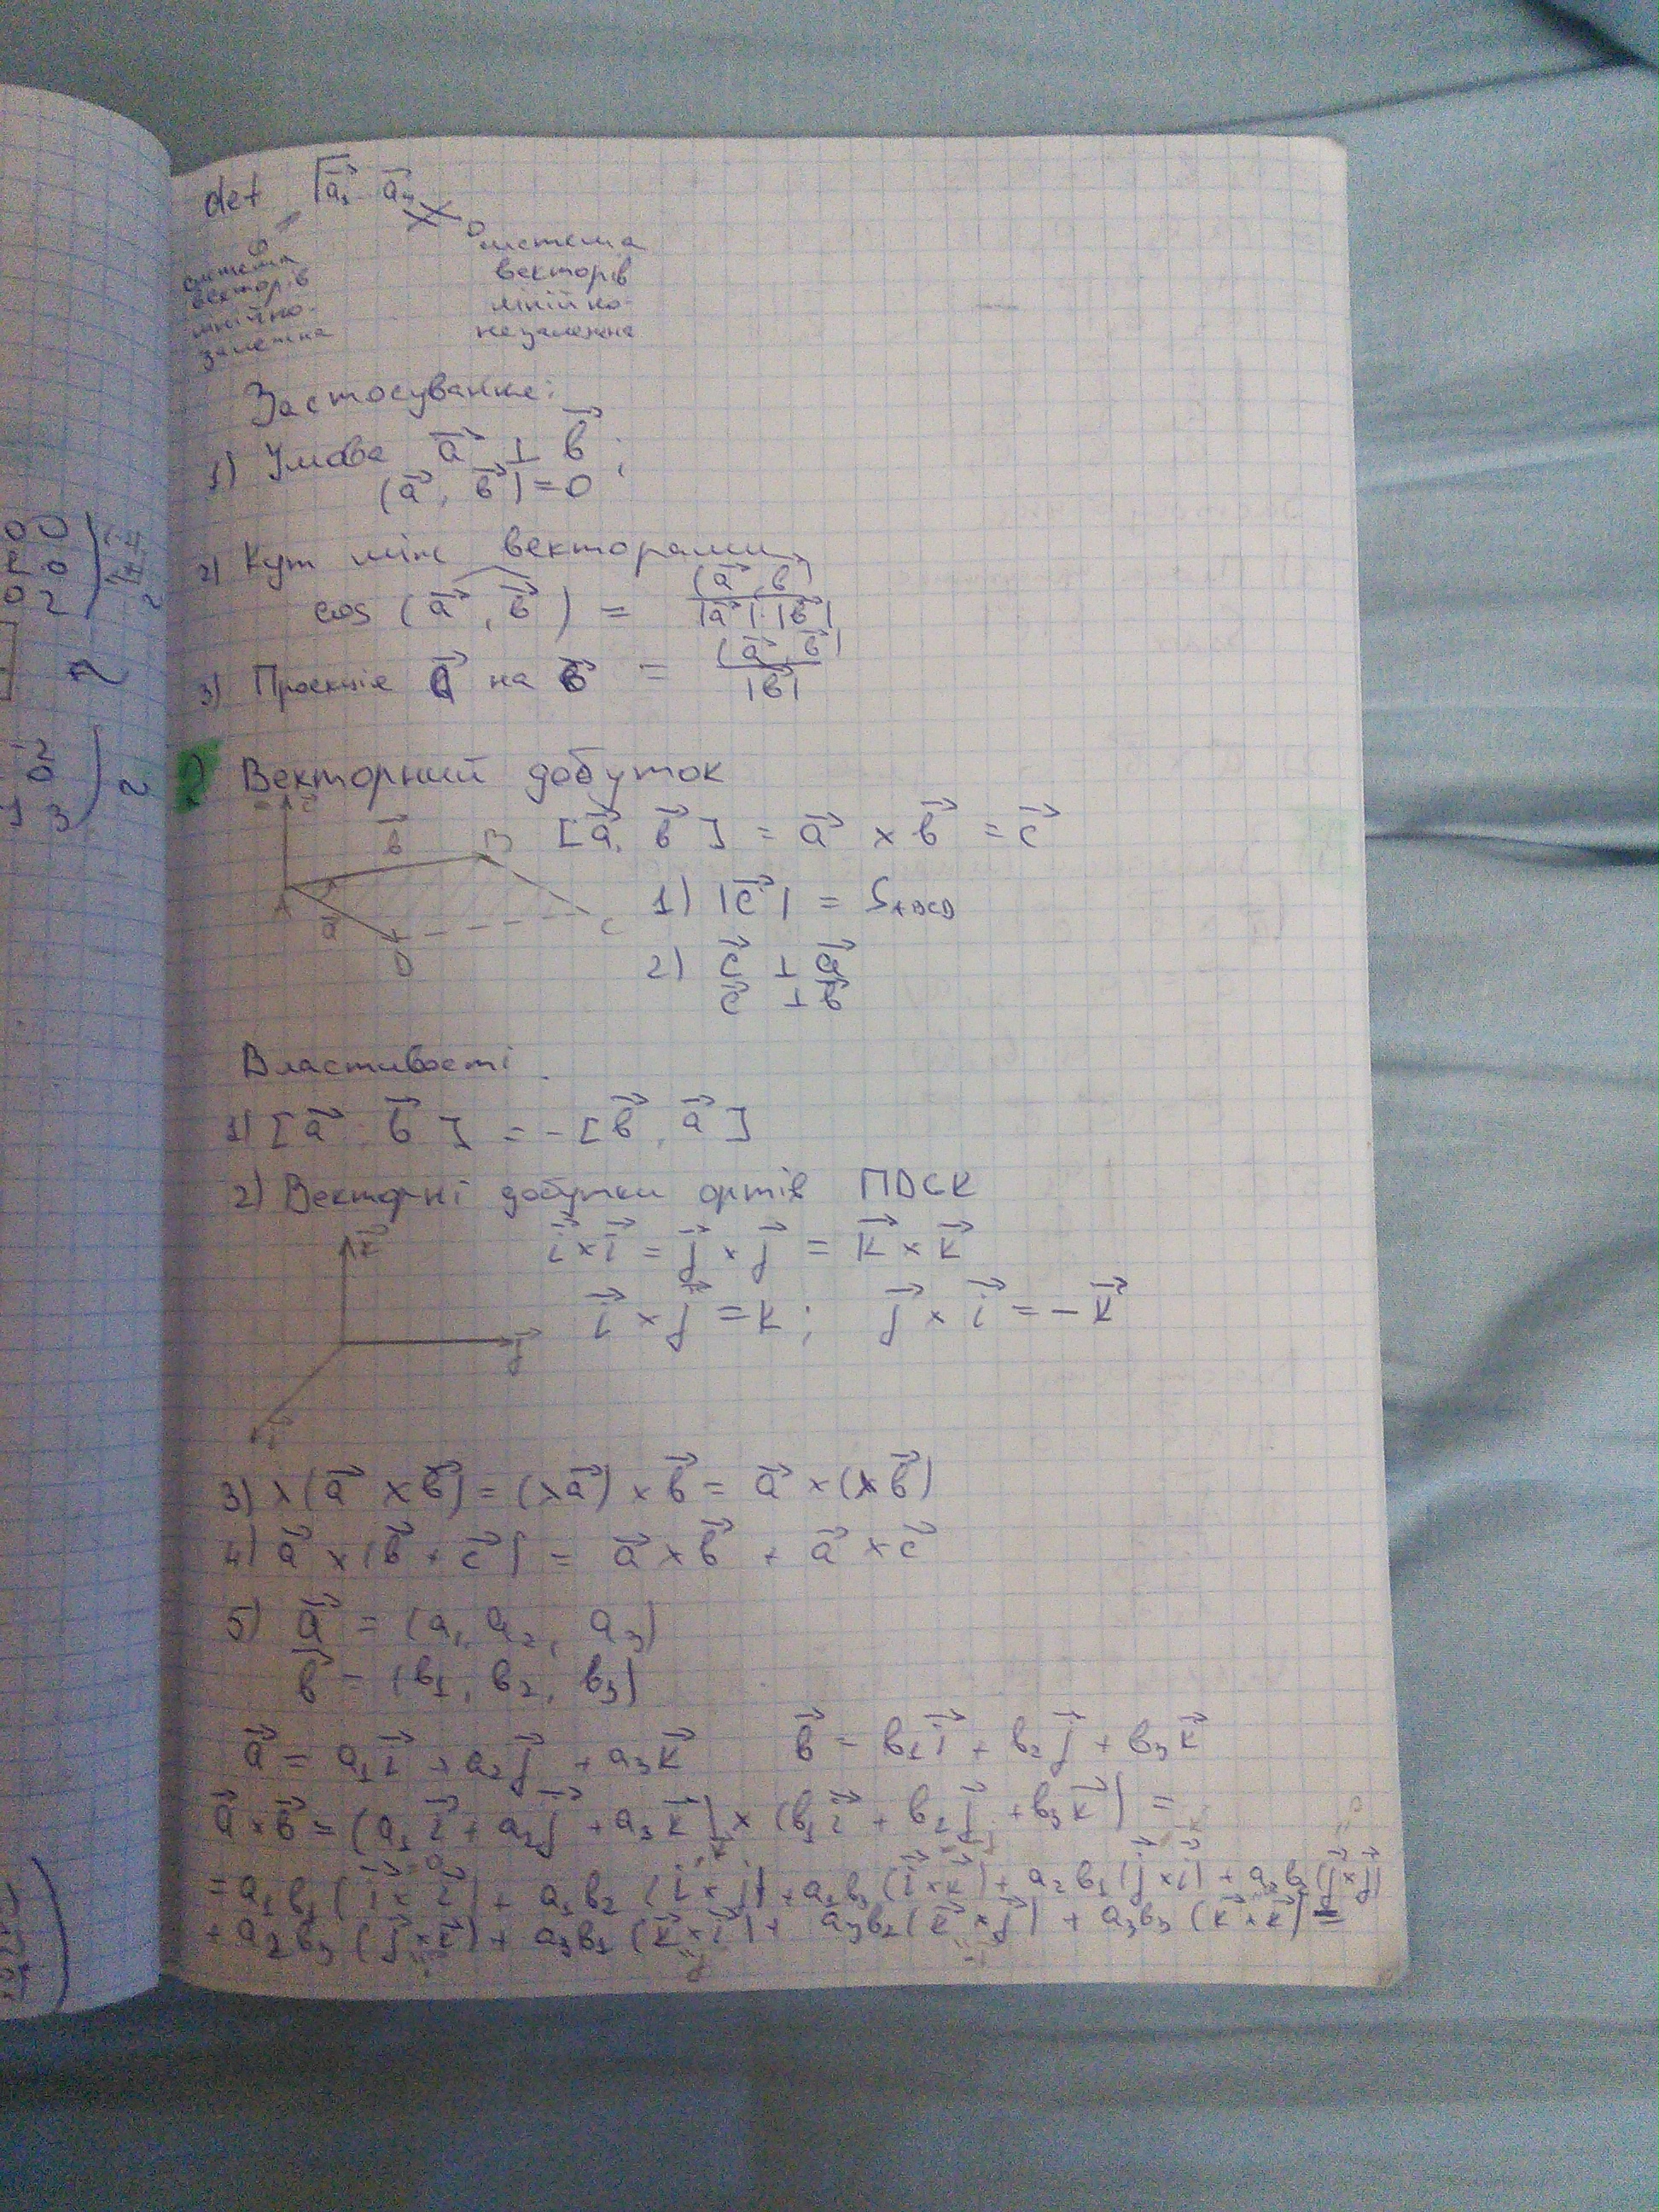 det [a⃗₁ a⃗ₙ
= 0 ≠ 0
система векторів лінійно-залежна
система векторів лінійно-незалежна
Застосування:
1) Умова a⃗ ⊥ b⃗;
(a⃗, b⃗) = 0
2) Кут між векторами
cos (a⃗, b⃗) = (a⃗, b⃗) / |a⃗|·|b⃗|
3) Проекція a⃗ на b⃗ = (a⃗, b⃗) / |b⃗|
Векторний добуток
[a⃗, b⃗] = a⃗ × b⃗ = c⃗
c⃗ b⃗ B A a⃗ D C
1) |c⃗| = S ABCD
2) c⃗ ⊥ a⃗
c⃗ ⊥ b⃗
Властивості.
1) [a⃗, b⃗] = -[b⃗, a⃗]
2) Векторні добутки ортів ПДСК
k⃗ j⃗ i⃗
i⃗ × i⃗ = j⃗ × j⃗ = k⃗ × k⃗
i⃗ × j⃗ = k; j⃗ × i⃗ = -k⃗
3) λ(a⃗ × b⃗) = (λa⃗) × b⃗ = a⃗ × (λb⃗)
4) a⃗ × (b⃗ + c⃗) = a⃗ × b⃗ + a⃗ × c⃗
5) a⃗ = (a₁, a₂, a₃)
b⃗ = (b₁, b₂, b₃)
a⃗ = a₁i⃗ + a₂j⃗ + a₃k⃗ b⃗ = b₁i⃗ + b₂j⃗ + b₃k⃗
a⃗ × b⃗ = (a₁i⃗ + a₂j⃗ + a₃k⃗) × (b₁i⃗ + b₂j⃗ + b₃k⃗) =
= a₁b₁(i⃗ × i⃗) + a₁b₂(i⃗ × j⃗) + a₁b₃(i⃗ × k⃗) + a₂b₁(j⃗ × i⃗) + a₂b₂(j⃗ × j⃗)
+ a₂b₃(j⃗ × k⃗) + a₃b₁(k⃗ × i⃗) + a₃b₂(k⃗ × j⃗) + a₃b₃(k⃗ × k⃗) =